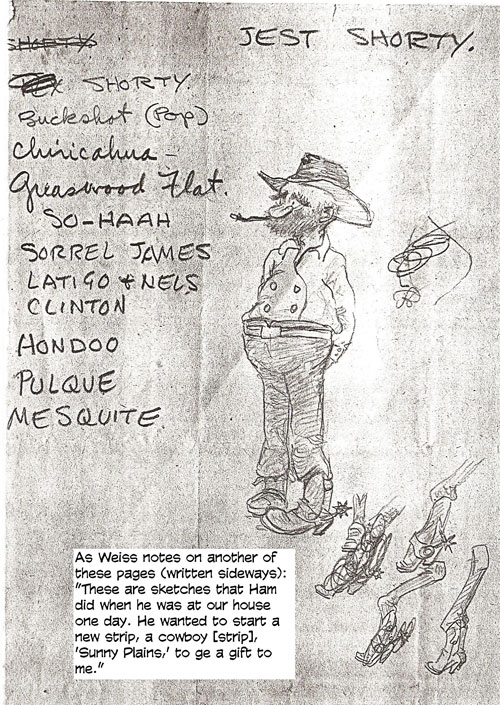 JEST SHORTY.
SHORTY
SHORTY.
Buckshot (Pop)
Chiricahua -
Greaswood Flat.
SO-HAAH
SORREL JAMES
LATIGO & NELS
CLINTON
HONDOO
PULQUE
MESQUITE.
As Weiss notes on another of
these pages (written sideways):
"These are sketches that Ham
did when he was at our house
one day. He wanted to start a
new strip, a cowboy [strip],
'Sunny Plains,' to ge a gift to
me."